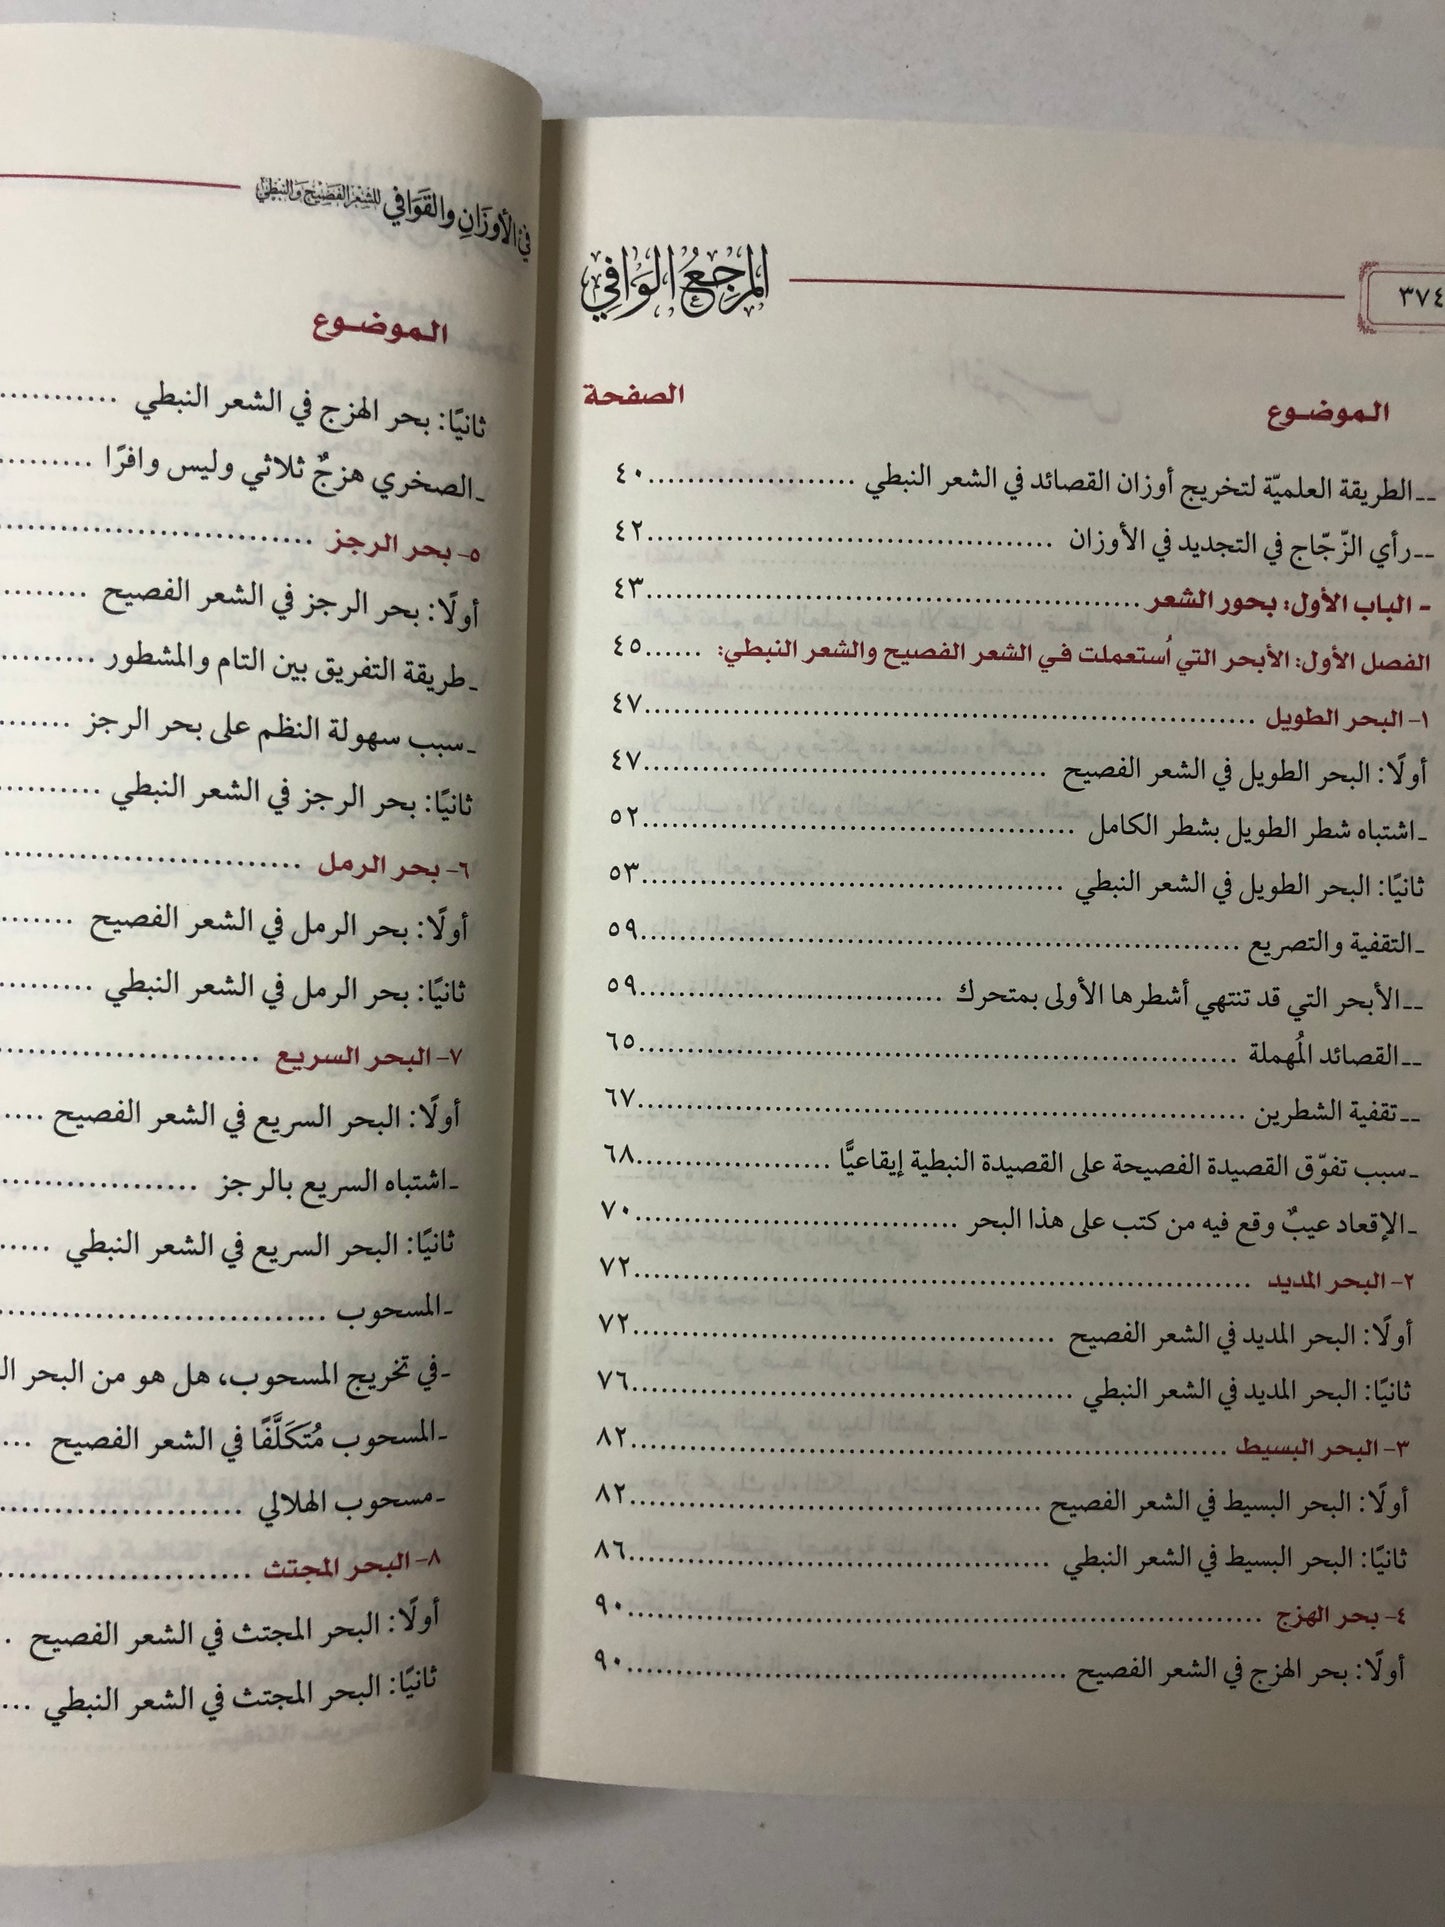 ٣٧٤
المرجع الوافي
الموضوع الصفحة
ــ الطريقة العلميّة لتخريج أوزان القصائد في الشعر النبطي ..................... ٤٠
ــ رأي الزّجّاج في التجديد في الأوزان ......................................... ٤٢
- الباب الأول: بحور الشعر .................................................. ٤٣
الفصل الأول: الأبحر التي اُستعملت في الشعر الفصيح والشعر النبطي: ...... ٤٥
١- البحر الطويل ............................................................. ٤٧
أولًا: البحر الطويل في الشعر الفصيح ......................................... ٤٧
ـ اشتباه شطر الطويل بشطر الكامل ............................................ ٥٢
ثانيًا: البحر الطويل في الشعر النبطي ........................................... ٥٣
ـ التقفية والتصريع ............................................................. ٥٩
ــ الأبحر التي قد تنتهي أشطرها الأولى بمتحرك ............................... ٥٩
ــ القصائد المُهملة ............................................................. ٦٥
ــ تقفية الشطرين .............................................................. ٦٧
ـ سبب تفوّق القصيدة الفصيحة على القصيدة النبطية إيقاعيًّا .................... ٦٨
ـ الإقعاد عيبٌ وقع فيه من كتب على هذا البحر ................................. ٧٠
٢- البحر المديد .............................................................. ٧٢
أولًا: البحر المديد في الشعر الفصيح .......................................... ٧٢
ثانيًا: البحر المديد في الشعر النبطي ............................................ ٧٦
٣- البحر البسيط ............................................................ ٨٢
أولًا: البحر البسيط في الشعر الفصيح ......................................... ٨٢
ثانيًا: البحر البسيط في الشعر النبطي ........................................... ٨٦
٤- بحر الهزج ............................................................... ٩٠
أولًا: بحر الهزج في الشعر الفصيح ............................................ ٩٠
في الأوزَانِ والقَوَافي للشِّعْرِ الفَصِيْحِ وَالنَّبَطِيْ
الموضوع
ثانيًا: بحر الهزج في الشعر النبطي ............
ـ الصخري هزجٌ ثلاثي وليس وافرًا ..........
٥- بحر الرجز ..............................
أولًا: بحر الرجز في الشعر الفصيح .........
ـ طريقة التفريق بين التام والمشطور ..........
ـ سبب سهولة النظم على بحر الرجز ........
ثانيًا: بحر الرجز في الشعر النبطي ...........
٦- بحر الرمل ..............................
أولًا: بحر الرمل في الشعر الفصيح ........
ثانيًا: بحر الرمل في الشعر النبطي ...........
٧- البحر السريع ..........................
أولًا: البحر السريع في الشعر الفصيح ....
ـ اشتباه السريع بالرجز ....................
ثانيًا: البحر السريع في الشعر النبطي .....
ـ المسحوب ................................
ـ في تخريج المسحوب، هل هو من البحر
ـ المسحوب مُتَكَلَّفًا في الشعر الفصيح ...
ـ مسحوب الهلالي ........................
٨- البحر المجتث .........................
أولًا: البحر المجتث في الشعر الفصيح .
ثانيًا: البحر المجتث في الشعر النبطي ...